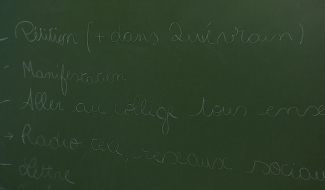 - Pétition (+ dans Quiévrain)
- Manifestation
- Aller au collège tous ense
→ Radio réseaux sociau
- Lettre